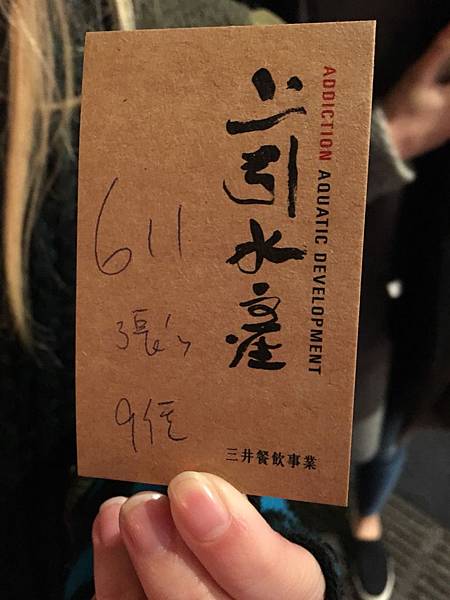 ADDICTION AQUATIC DEVELOPMENT
上引水產
三井餐飲事業
611
張's
9位